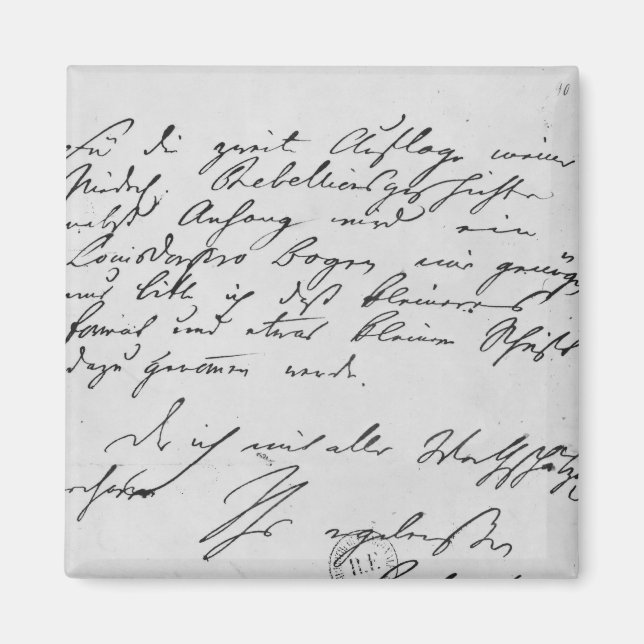 10
Für die zweite Auflage meiner
Niederl. Rebellionsgeschichte
nebst Anhang wird ein
Louisdor pro Bogen mir genügen
nur bitte ich daß kleineres
Format und etwas kleinere Schrift
dazu genommen werde.
Der ich mit aller
Ihr ergebenster
R.F.